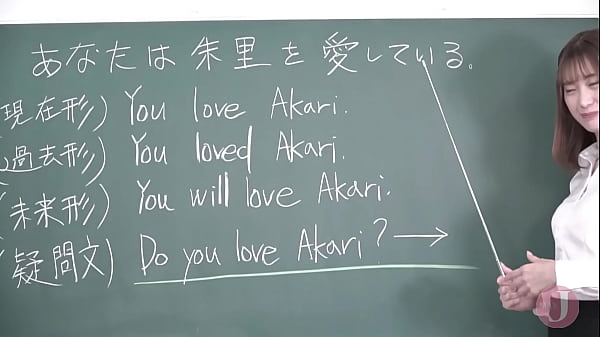 あなたは朱里を愛している。
(現在形) You love Akari.
(過去形) You loved Akari.
(未来形) You will love Akari.
(疑問文) Do you love Akari? →
J